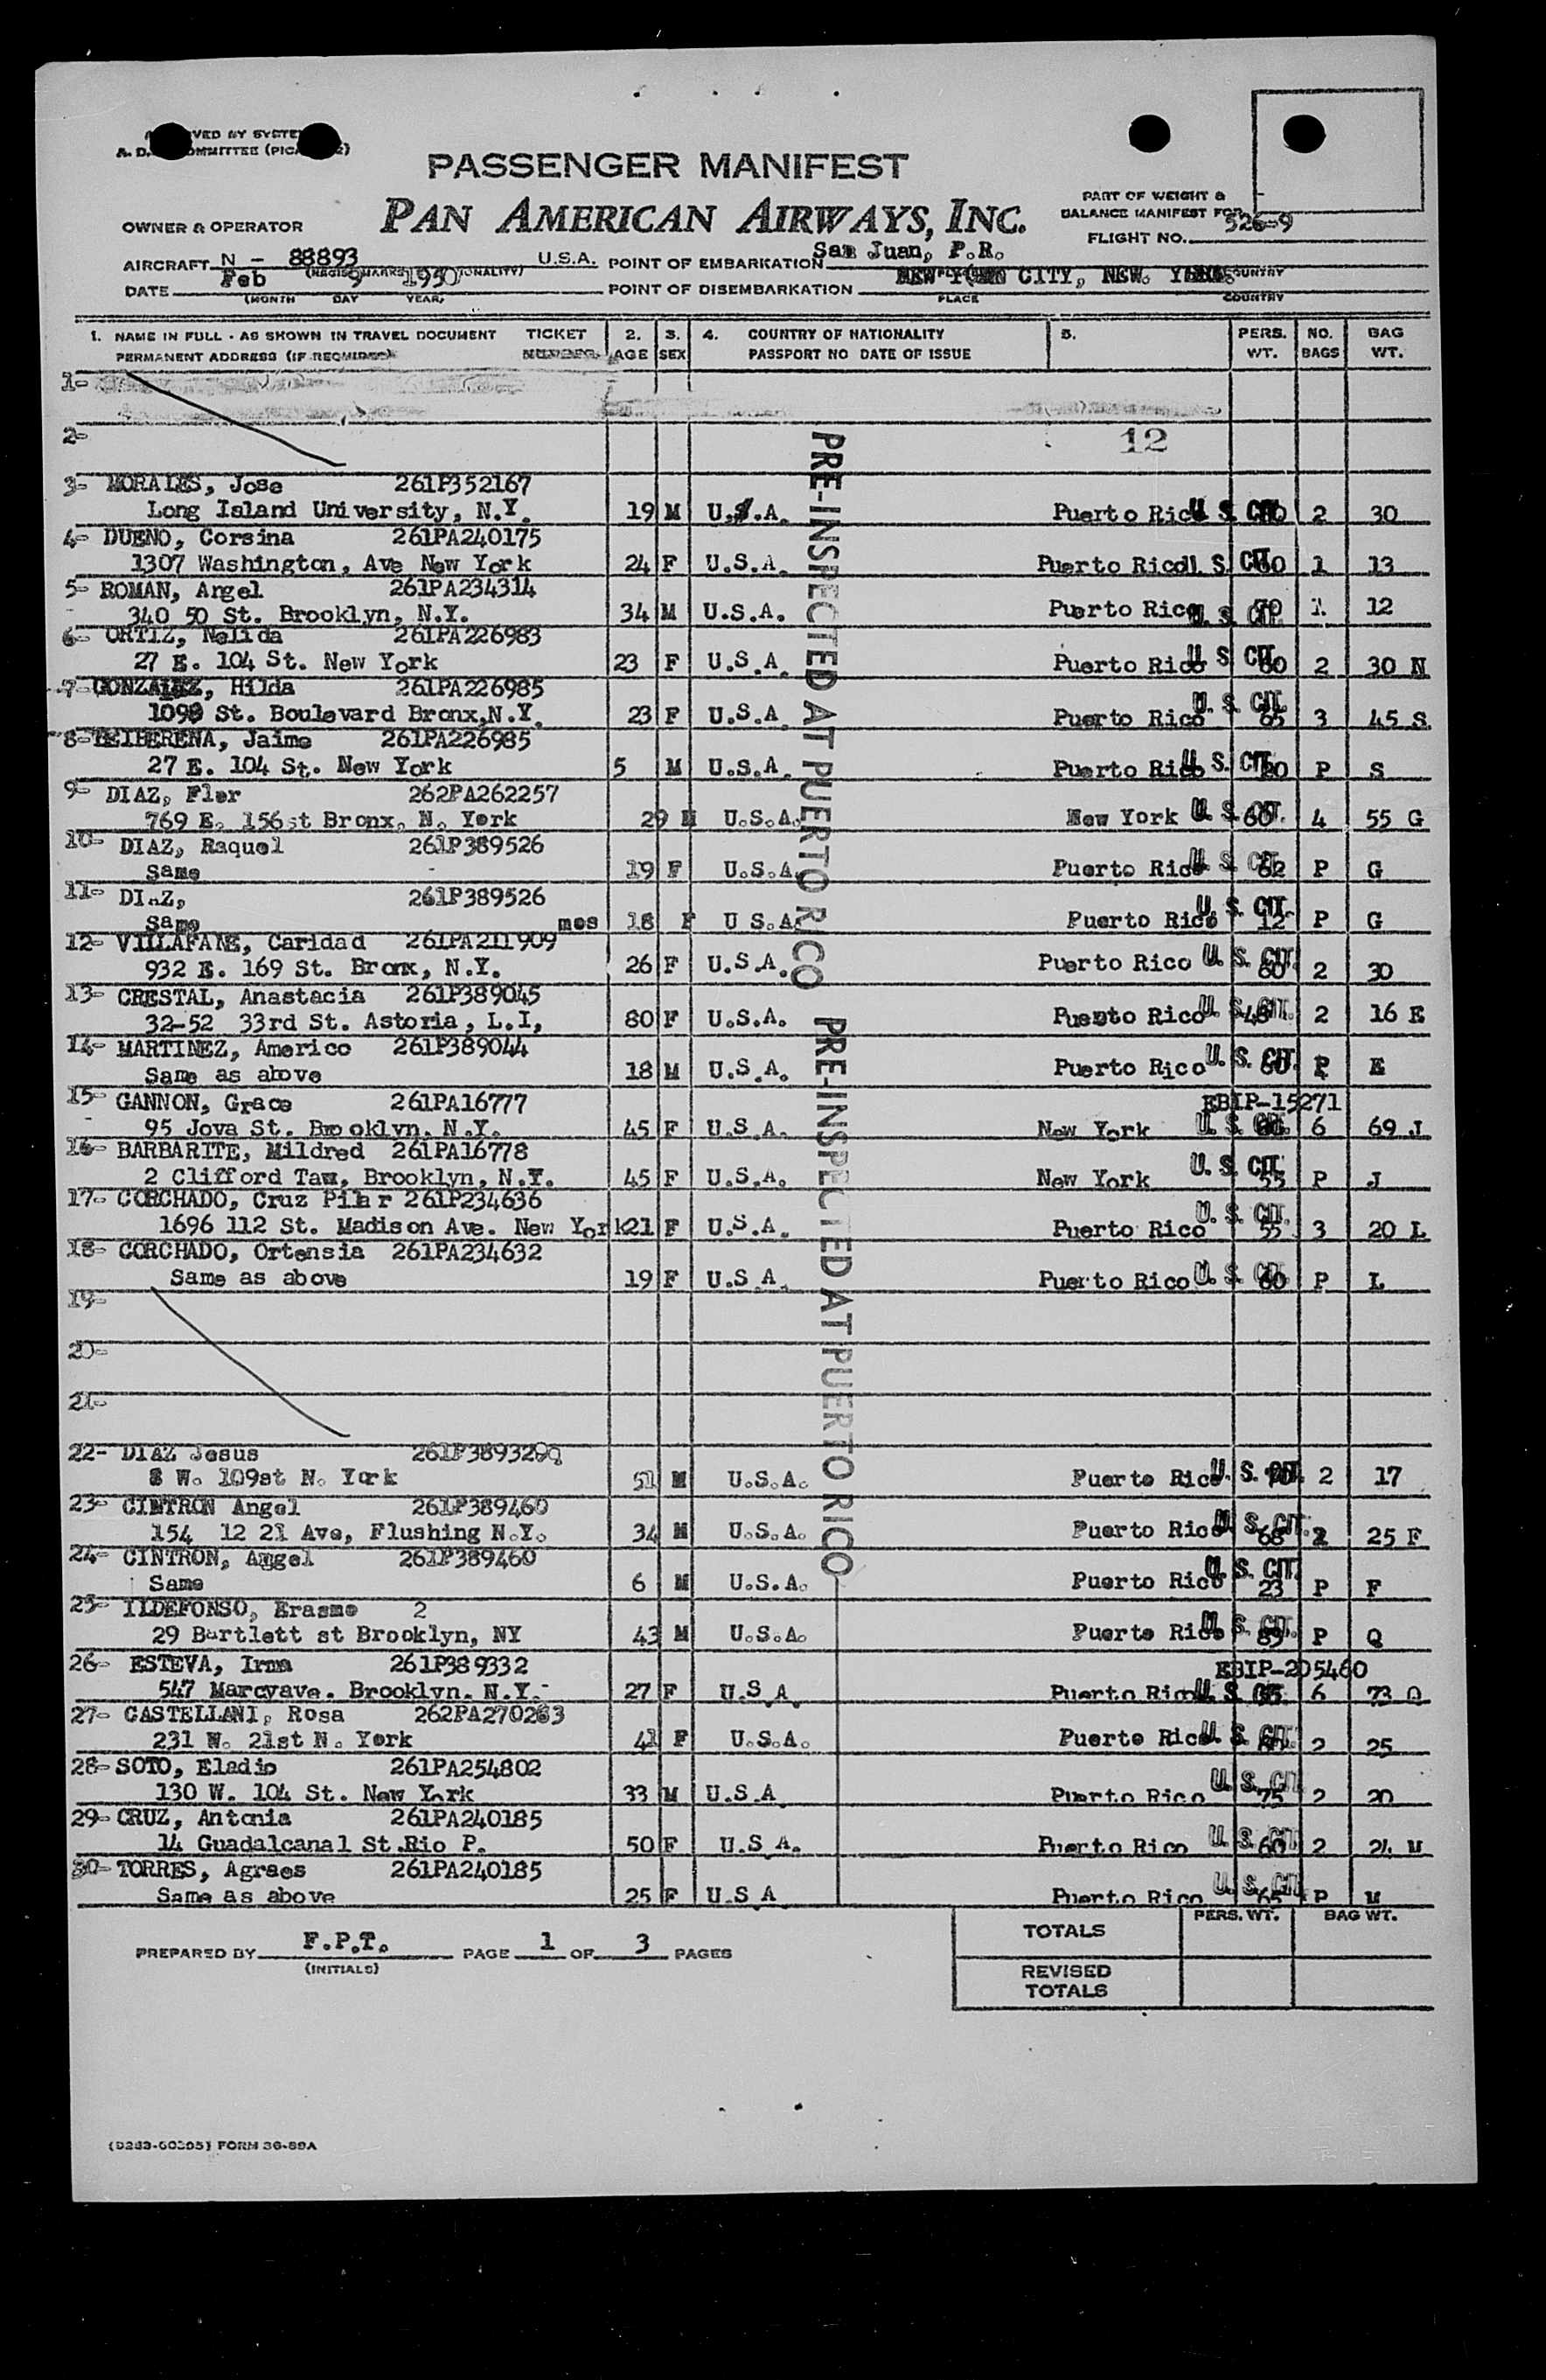 PASSENGER MANIFEST
PAN AMERICAN AIRWAYS, INC.
PART OF WEIGHT &
BALANCE MANIFEST FOR
FLIGHT NO. 526-9
OWNER & OPERATOR
AIRCRAFT N - 88893 U.S.A. POINT OF EMBARKATION San Juan, P.R.
DATE Feb 9 1950 POINT OF DISEMBARKATION CITY, NEW
(MONTH DAY YEAR) PLACE COUNTRY
1. NAME IN FULL - AS SHOWN IN TRAVEL DOCUMENT TICKET 2. 3. 4. COUNTRY OF NATIONALITY 5. PERS. NO. BAG
PERMANENT ADDRESS (IF REQUIRED) AGE SEX PASSPORT NO DATE OF ISSUE WT. BAGS WT.
1-
2- 12
3- MORALES, Jose 261P352167
Long Island University, N.Y. 19 M U.S.A. Puerto Rico U. S. CIT. 2 30
4- DUENO, Corsina 261PA240175
1307 Washington, Ave New York 24 F U.S.A. Puerto Rico U. S. CIT. 1 13
5- ROMAN, Angel 261PA234314
340 50 St. Brooklyn, N.Y. 34 M U.S.A. Puerto Rico U. S. CIT. 70 1 12
6- ORTIZ, Nelida 261PA226983
27 E. 104 St. New York 23 F U.S.A. Puerto Rico U. S. CIT. 60 2 30 N
7- GONZALEZ, Hilda 261PA226985
1098 St. Boulevard Bronx,N.Y. 23 F U.S.A. Puerto Rico U. S. CIT. 65 3 45 S
8- Jaime 261PA226985
27 E. 104 St. New York 5 M U.S.A. Puerto Rico U. S. CIT. 20 P S
9- DIAZ, Flor 262PA262257
769 E. 156st Bronx, N. York 29 M U.S.A. New York U. S. CIT. 60 4 55 G
10- DIAZ, Raquel 261P389526
Same 19 F U.S.A. Puerto Rico U. S. CIT. 62 P G
11- DIAZ, 261P389526
Same mos 18 F U S.A. Puerto Rico U. S. CIT. 12 P G
12- VILLAFANE, Caridad 261PA211909
932 E. 169 St. Bronx, N.Y. 26 F U.S.A. Puerto Rico U. S. CIT. 60 2 30
13- CRESTAL, Anastacia 261P389045
32-52 33rd St. Astoria, L.I, 80 F U.S.A. Puerto Rico U. S. CIT. 48 2 16 E
14- MARTINEZ, Americo 261P389044
Same as above 18 M U.S.A. Puerto Rico U. S. CIT. 60 P E
15- GANNON, Grace 261PA16777 EBIP-15271
95 Jova St. Brooklyn. N.Y. 45 F U.S.A. New York U. S. CIT. 6 69 J
16- BARBARITE, Mildred 261PA16778
2 Clifford Brooklyn, N.Y. 45 F U.S.A. New York U. S. CIT. 55 P J
17- CORCHADO, Cruz Pilar 261P234636
1696 112 St. Madison Ave. New York 21 F U.S.A. Puerto Rico U. S. CIT. 55 3 20 L
18- CORCHADO, Ortensia 261PA234632
Same as above 19 F U.S.A. Puerto Rico U. S. CIT. 60 P L
19-
20-
21-
22- DIAZ Jesus
8 W. 109st N. York 51 M U.S.A. Puerto Rico U. S. CIT. 70 2 17
23- CINTRON Angel 261P389460
154 12 21 Ave, Flushing N.Y. 34 M U.S.A. Puerto Rico U. S. CIT. 68 2 25 F
24- CINTRON, Angel 261P389460
Same 6 M U.S.A. Puerto Rico U. S. CIT. 23 P F
25- ILDEFONSO, Erasmo 2
29 Bartlett st Brooklyn, NY 43 M U.S.A. Puerto Rico U. S. CIT. 89 P Q
26- ESTEVA, Irma 261P389332 EBIP-205460
547 Marcyave. Brooklyn. N.Y. 27 F U.S.A. Puerto Rico U. S. CIT. 6 73 Q
27- CASTELLANI, Rosa 262PA270263
231 W. 21st N. York 41 F U.S.A. Puerto Rico U. S. CIT. 2 25
28- SOTO, Eladio 261PA254802
130 W. 104 St. New York 33 M U.S.A Puerto Rico U. S. CIT. 75 2 20
29- CRUZ, Antonia 261PA240185
14 Guadalcanal St.Rio P. 50 F U.S.A. Puerto Rico U. S. CIT. 60 2 24 M
30- TORRES, Agraes 261PA240185
Same as above 25 F U.S.A Puerto Rico U. S. CIT. 65 P M
PRE-INSPECTED AT PUERTO RICO PRE-INSPECTED AT PUERTO RICO
TOTALS PERS. WT. BAG WT.
PREPARED BY F.P.T. PAGE 1 OF 3 PAGES
(INITIALS)
REVISED
TOTALS
FORM 36-89A